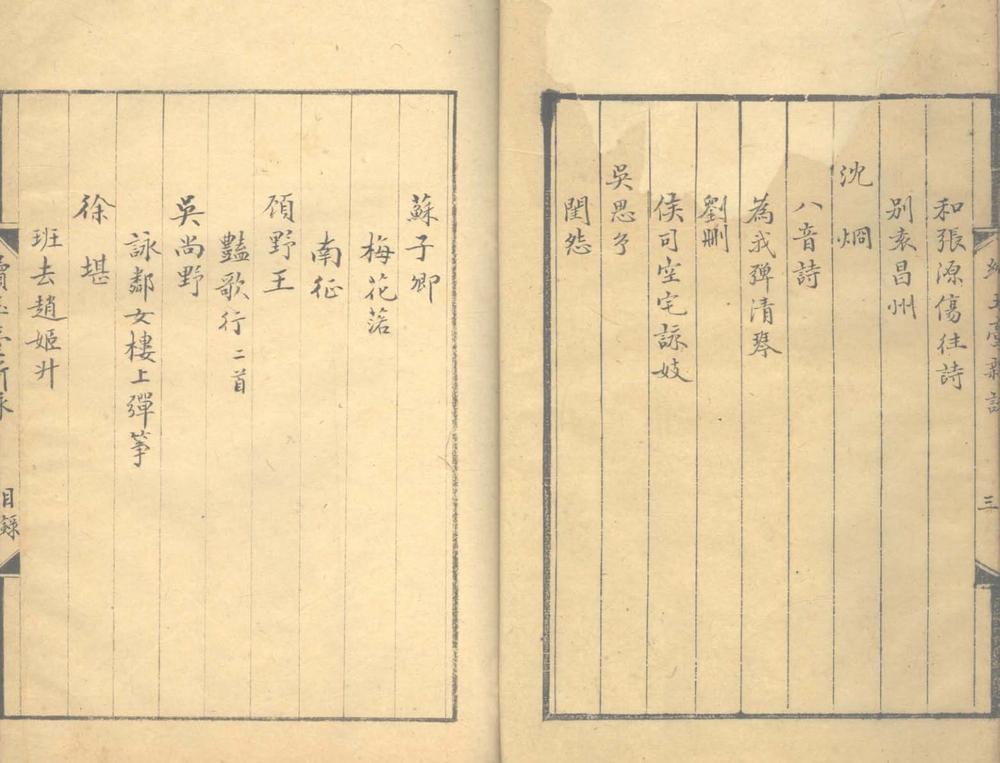 續玉臺新詠
三
和張源傷往詩
別袁昌州
沈炯
八音詩
為我彈清琴
劉刪
侯司空宅詠妓
吳思玄
閨怨
蘇子卿
梅花落
南征
顧野王
豔歌行 二首
吳尚野
詠鄰女樓上彈箏
徐堪
班去趙姬升
續玉臺新詠
目錄